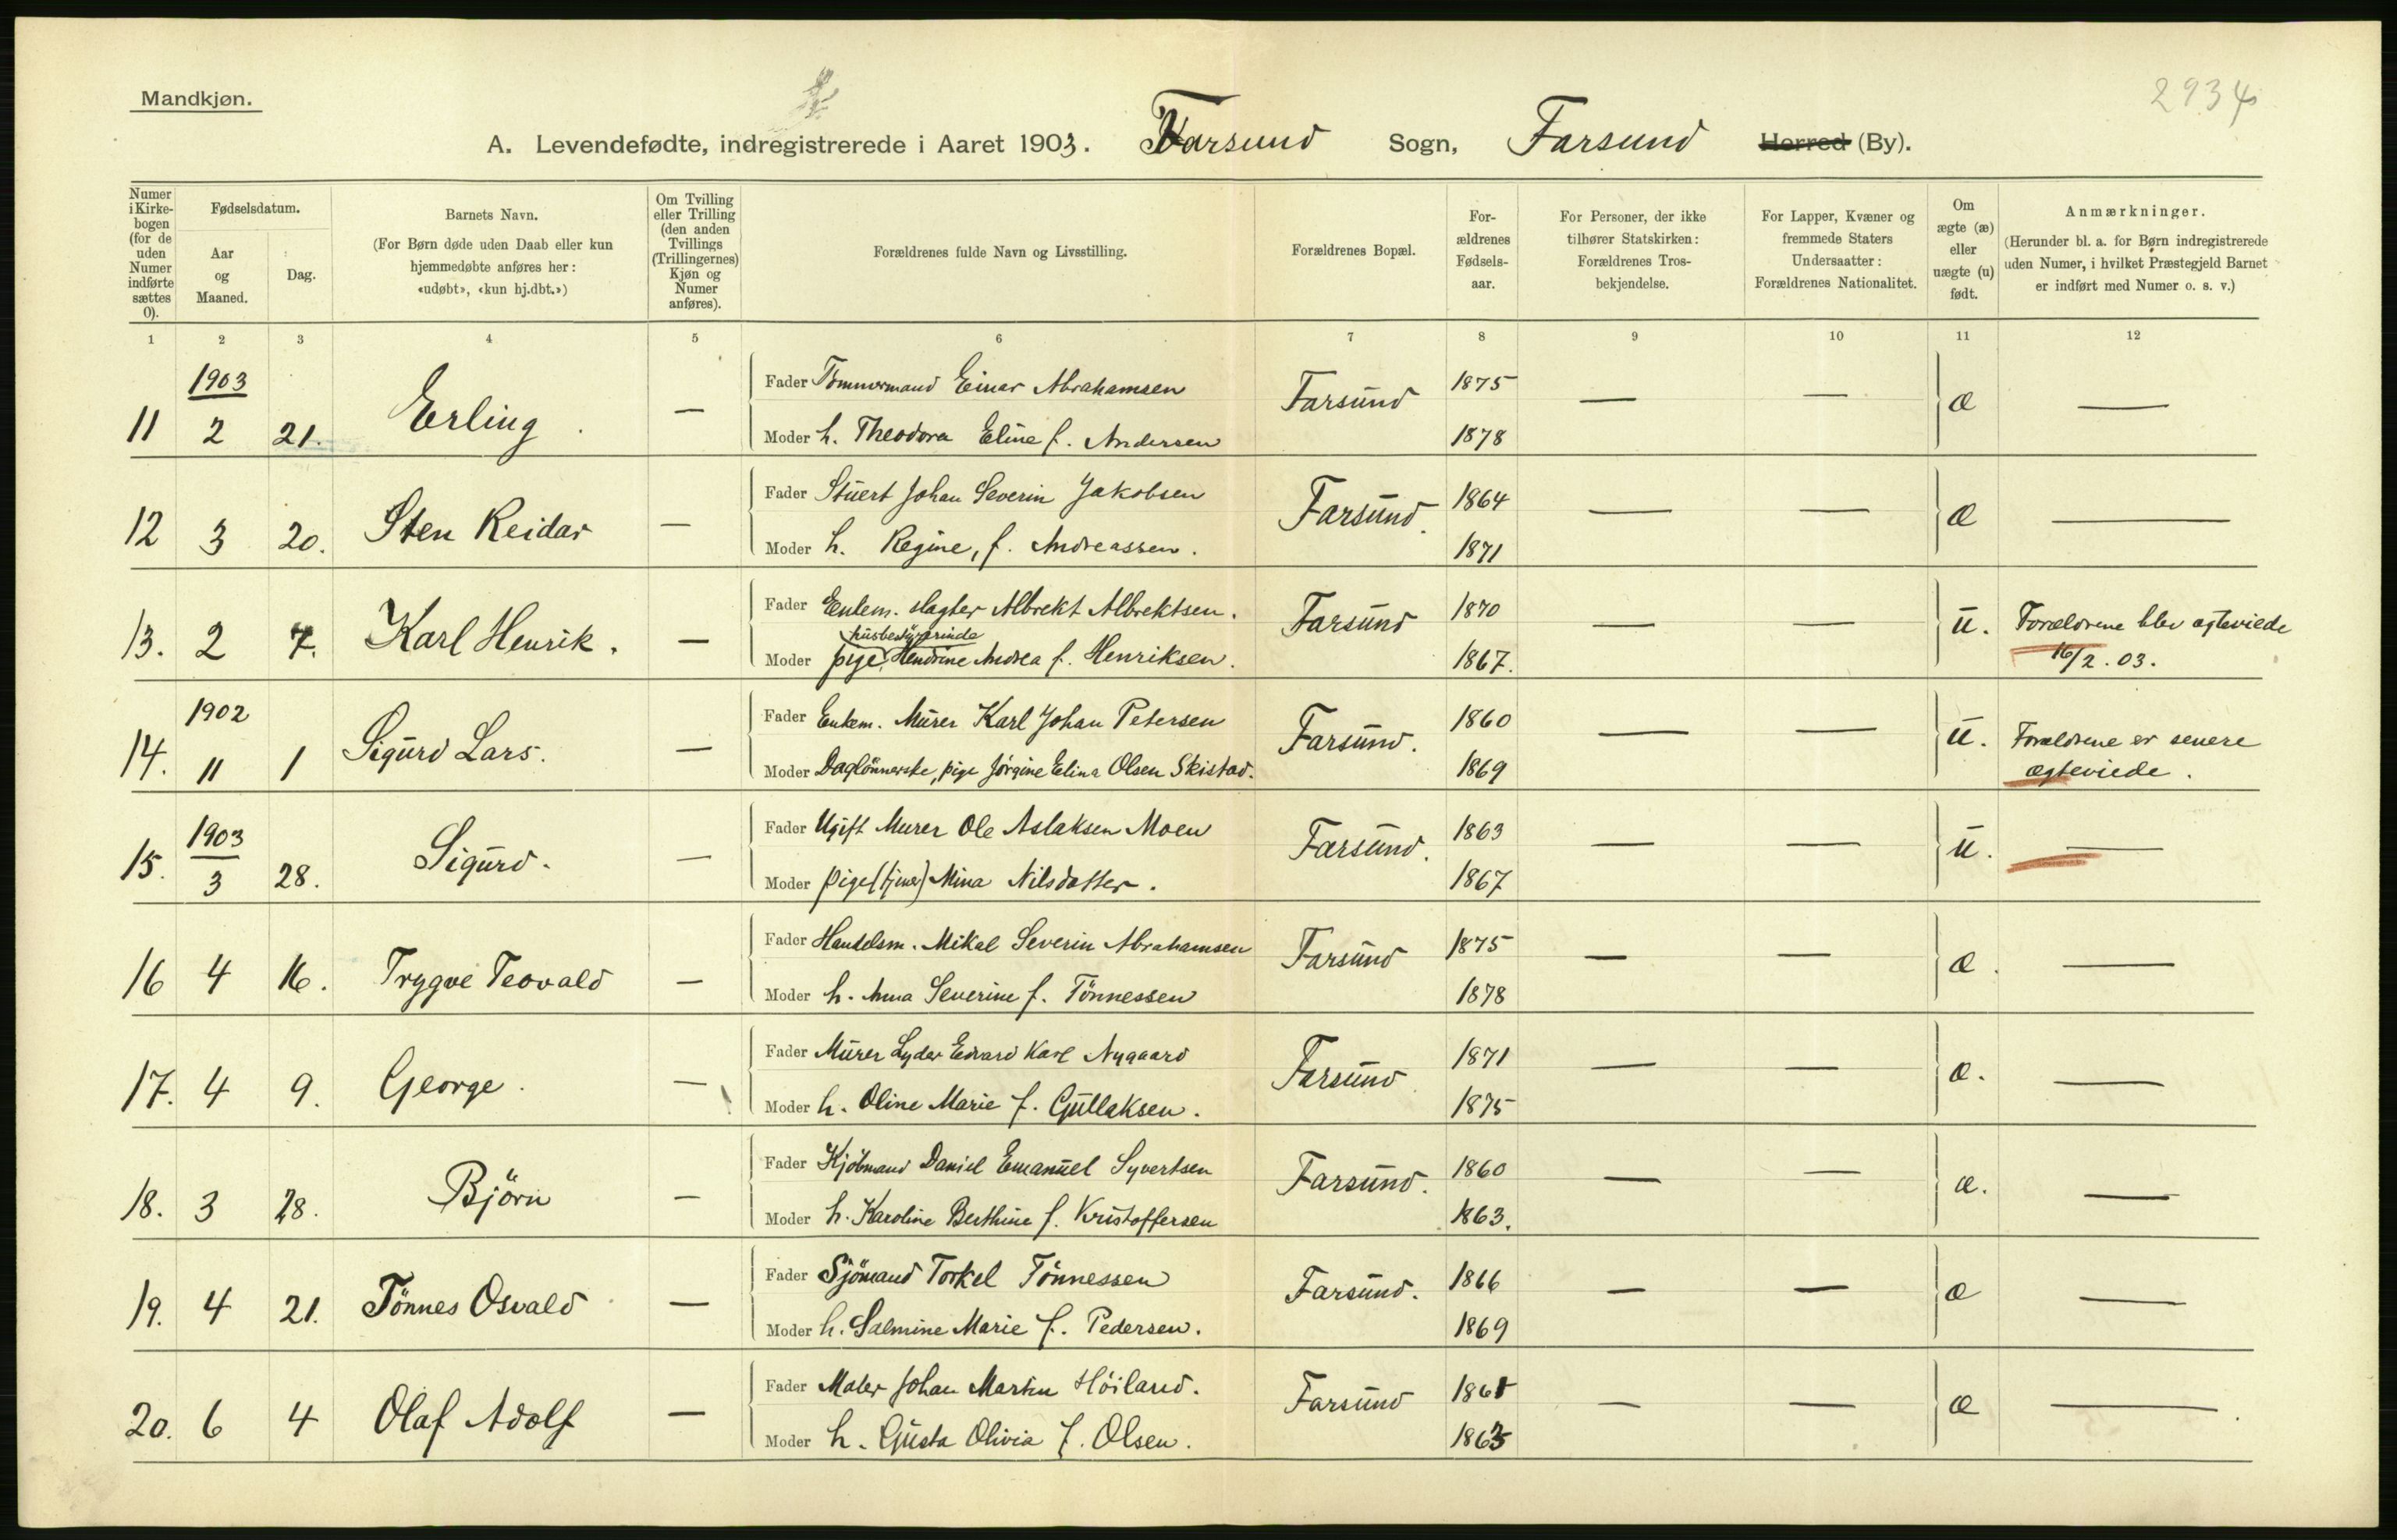 Mandkjøn.
2934
A. Levendefødte, indregistrerede i Aaret 1903. Farsund Sogn, Farsund Herred (By).
Numer i Kirkebogen (for de uden Numer indførte sættes 0).
Fødselsdatum.
Aar og Maaned.
Dag.
Barnets Navn.
(For Børn døde uden Daab eller kun hjemmedøbte anføres her: «udøbt», «kun hj.dbt.»)
Om Tvilling eller Trilling (den anden Tvillings (Trillingernes) Kjøn og Numer anføres).
Forældrenes fulde Navn og Livsstilling.
Forældrenes Bopæl.
Forældrenes Fødselsaar.
For Personer, der ikke tilhører Statskirken: Forældrenes Trosbekjendelse.
For Lapper, Kvæner og fremmede Staters Undersaatter: Forældrenes Nationalitet.
Om ægte (æ) eller uægte (u) født.
Anmærkninger.
(Herunder bl. a. for Børn indregistrerede uden Numer, i hvilket Præstegjeld Barnet er indført med Numer o. s. v.)
1 2 3 4 5 6 7 8 9 10 11 12
1903
11 2 21. Erling — Fader Tømmermand Einar Abrahamsen Farsund 1875 — — æ —
Moder h. Theodora Eline f. Andersen 1878
12 3 20. Sten Reidar — Fader Stuert Johan Severin Jakobsen Farsund. 1864 — — æ —
Moder h. Regine, f. Andreassen. 1871
13. 2 7. Karl Henrik. — Fader Enkem. slagter Albrekt Albrektsen. Farsund 1870 — — u. Forældrene blev ægteviede
husbestyrerinde
Moder pige, Hendrine Andrea f. Henriksen. 1867. 16/2. 03.
1902
14. 11 1 Sigurd Lars. — Fader Enkem. Murer Karl Johan Petersen Farsund. 1860 — — u. Forældrene er senere
Moder Daglönnerske, pige Jörgine Elina Olsen Skistad. 1869 ægteviede.
1903
15. 3 28. Sigurd. — Fader Ugift Murer Ole Aslaksen Moen Farsund. 1863 — — u. —
Moder pige (tjener) Mina Nilsdatter. 1867
16 4 16. Trygve Teovald — Fader Handelsm. Mikal Severin Abrahamsen Farsund 1875 — — æ. —
Moder h. Anna Severine f. Tönnessen 1878
17. 4 9. George. — Fader Murer Lyder Edvard Karl Nygaard Farsund 1871 — — æ. —
Moder h. Oline Marie f. Gullaksen. 1875
18. 3 28. Björn — Fader Kjöbmand Daniel Emanuel Syvertsen Farsund. 1860 — — æ. —
Moder h. Karoline Berthine f. Kristoffersen 1863.
19. 4 21. Tönnes Osvald — Fader Sjömand Torkel Tönnessen Farsund. 1866 — — æ —
Moder h. Salmine Marie f. Pedersen. 1869
20. 6 4 Olaf Adolf — Fader Maler Johan Martin Höiland. Farsund 1861 — — æ —
Moder h. Gusta Olivia f. Olsen. 1863